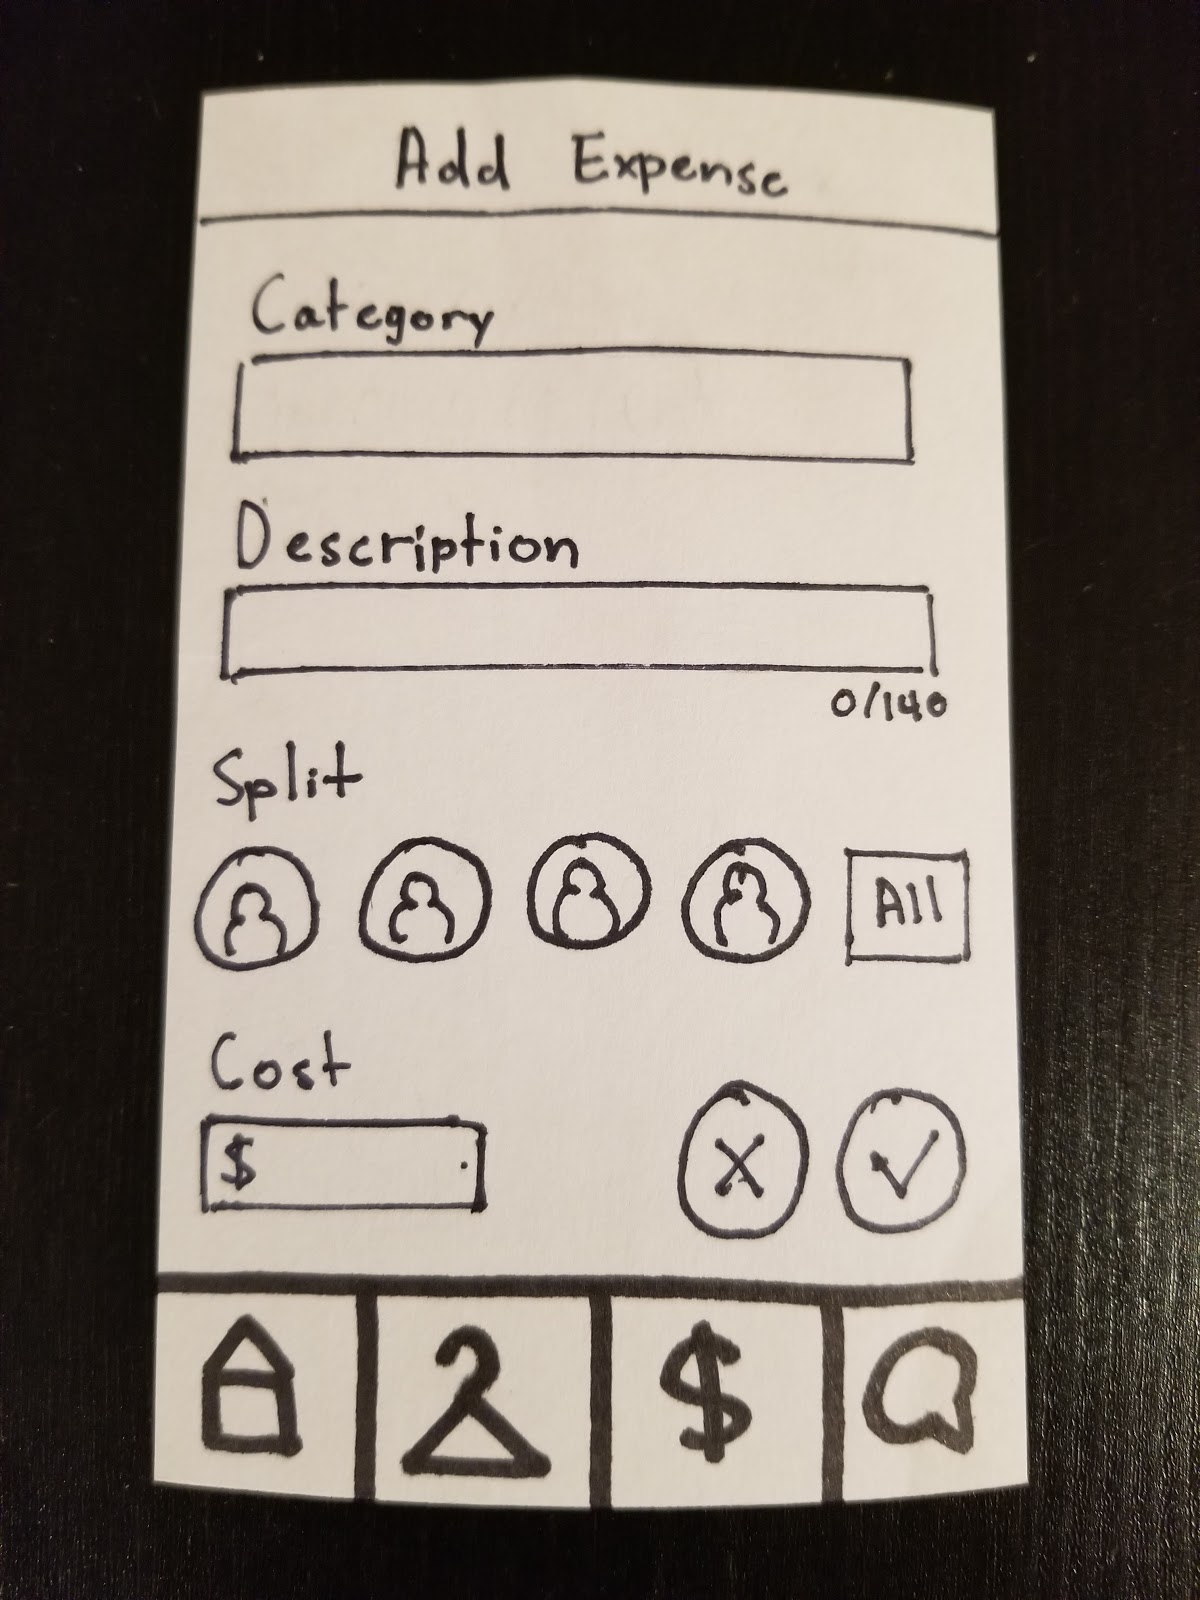 Add Expense
Category
Description
0/140
Split
All
Cost
$ .
X ✓
$